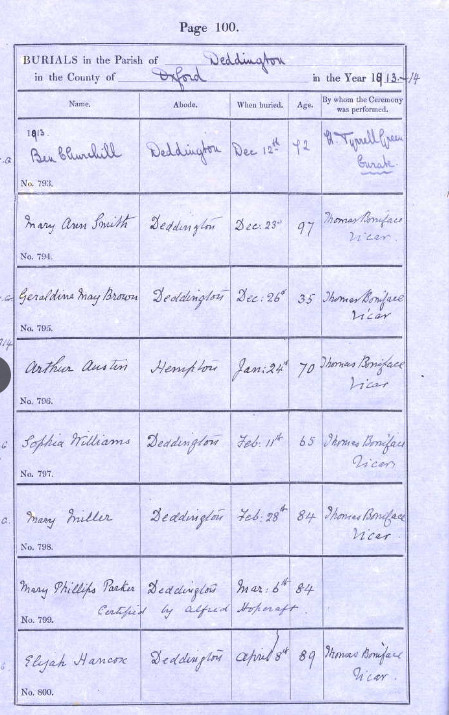 Page 100.
BURIALS in the Parish of Deddington
in the County of Oxford in the Year 1913.-14
Name. Abode. When buried. Age. By whom the Ceremony was performed.
1913.
Ben Churchill Deddington Dec 12th 72 H. Tyrrell Green
Curate.
No. 793.
Mary Ann Smith Deddington Dec: 23d 97 Thomas Boniface
Vicar.
No. 794.
Geraldine May Brown Deddington Dec: 26th 35 Thomas Boniface
Vicar
No. 795.
Arthur Austin Hempton Jan: 24th 70 Thomas Boniface
Vicar
No. 796.
Sophia Williams Deddington Feb. 11th 65 Thomas Boniface
Vicar
No. 797.
Mary Miller Deddington Feb: 28th 84 Thomas Boniface
Vicar.
No. 798.
Mary Phillips Parker Deddington Mar: 6th 84
Certified by Alfred Hopcraft.
No. 799.
Elijah Hancox Deddington April 8th 89 Thomas Boniface
Vicar.
No. 800.